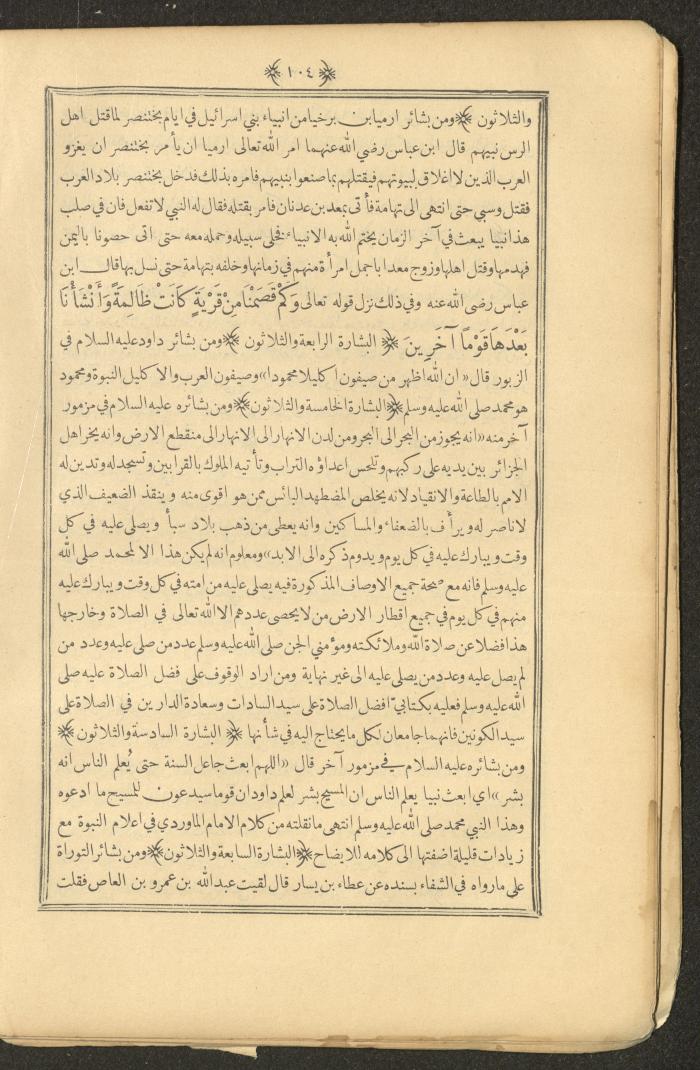 ﴿ ١٠٤ ﴾
والثلاثون ﴾ ومن بشائر ارميا بن برخيا من انبياء بني اسرائيل في ايام بختنصر لما قتل اهل
الرس نبيهم قال ابن عباس رضي الله عنهما امر الله تعالى ارميا ان يأمر بختنصر ان يغزو
العرب الذين لا اغلاق لبيوتهم فيقتلهم بما صنعوا بنبيهم فامره بذلك فدخل بختنصر بلاد العرب
فقتل وسبي حتى انتهى الى تهامة فأتى بمعد بن عدنان فامر بقتله فقال له النبي لا تفعل فان في صلب
هذا نبيا يبعث في آخر الزمان يختم الله به الانبياء فخلى سبيله وحمله معه حتى اتى حصونا باليمن
فهدمها وقتل اهلها وزوج معدا باجمل امرأة منهم في زمانها وخلفه بتهامة حتى نسل بها قال ابن
عباس رضي الله عنه وفي ذلك نزل قوله تعالى وَكَمْ قَصَمْنَا مِنْ قَرْيَةٍ كَانَتْ ظَالِمَةً وَأَنْشَأْنَا
بَعْدَهَا قَوْمًا آخَرِينَ ﴿ البشارة الرابعة والثلاثون ﴾ ومن بشائر داود عليه السلام في
الزبور قال « ان الله اظهر من صيفون اكليلا محمودا» وصيفون العرب والاكليل النبوة ومحمود
هو محمد صلى الله عليه وسلم ﴿ البشارة الخامسة والثلاثون ﴾ ومن بشائره عليه السلام في مزمور
آخر منه «انه يجوز من البحر الى البحر ومن لدن الانهار الى الانهار الى منقطع الارض وانه يخر اهل
الجزائر بين يديه على ركبهم وتلحس اعداؤه التراب وتأتيه الملوك بالقرابين وتسجد له وتدين له
الامم بالطاعة والانقياد لانه يخلص المضطهد البائس ممن هو اقوى منه وينقذ الضعيف الذي
لا ناصر له ويرأف بالضعفاء والمساكين وانه يعطى من ذهب بلاد سبأ ويصلى عليه في كل
وقت ويبارك عليه في كل يوم ويدوم ذكره الى الابد» ومعلوم انه لم يكن هذا الا لمحمد صلى الله
عليه وسلم فانه مع صحة جميع الاوصاف المذكورة فيه يصلى عليه من امته في كل وقت ويبارك عليه
منهم في كل يوم في جميع اقطار الارض من لا يحصى عددهم الا الله تعالى في الصلاة وخارجها
هذا فضلا عن صلاة الله وملائكته ومؤمني الجن صلى الله عليه وسلم عدد من صلى عليه وعدد من
لم يصل عليه وعدد من يصلى عليه الى غير نهاية ومن اراد الوقوف على فضل الصلاة عليه صلى
الله عليه وسلم فعليه بكتابيّ افضل الصلاة على سيد السادات وسعادة الدارين في الصلاة على
سيد الكونين فانهما جامعان لكل ما يحتاج اليه في شأنها ﴿ البشارة السادسة والثلاثون ﴾
ومن بشائره عليه السلام في مزمور آخر قال «اللهم ابعث جاعل السنة حتى يُعلم الناس انه
بشر» اي ابعث نبيا يعلم الناس ان المسيح بشر لعلم داود ان قوما سيدعون للمسيح ما ادعوه
وهذا النبي محمد صلى الله عليه وسلم انتهى ما نقلته من كلام الامام الماوردي في اعلام النبوة مع
زيادات قليلة اضفتها الى كلامه للايضاح ﴿ البشارة السابعة والثلاثون ﴾ ومن بشائر التوراة
على ما رواه في الشفاء بسنده عن عطاء بن يسار قال لقيت عبد الله بن عمرو بن العاص فقلت